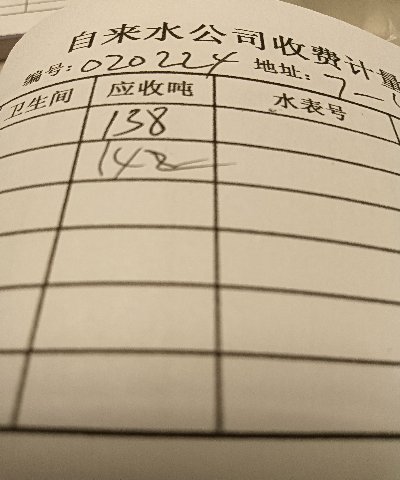 自来水公司收费计量
编号: 020224 地址: 7-
卫生间 应收吨 水表号
138